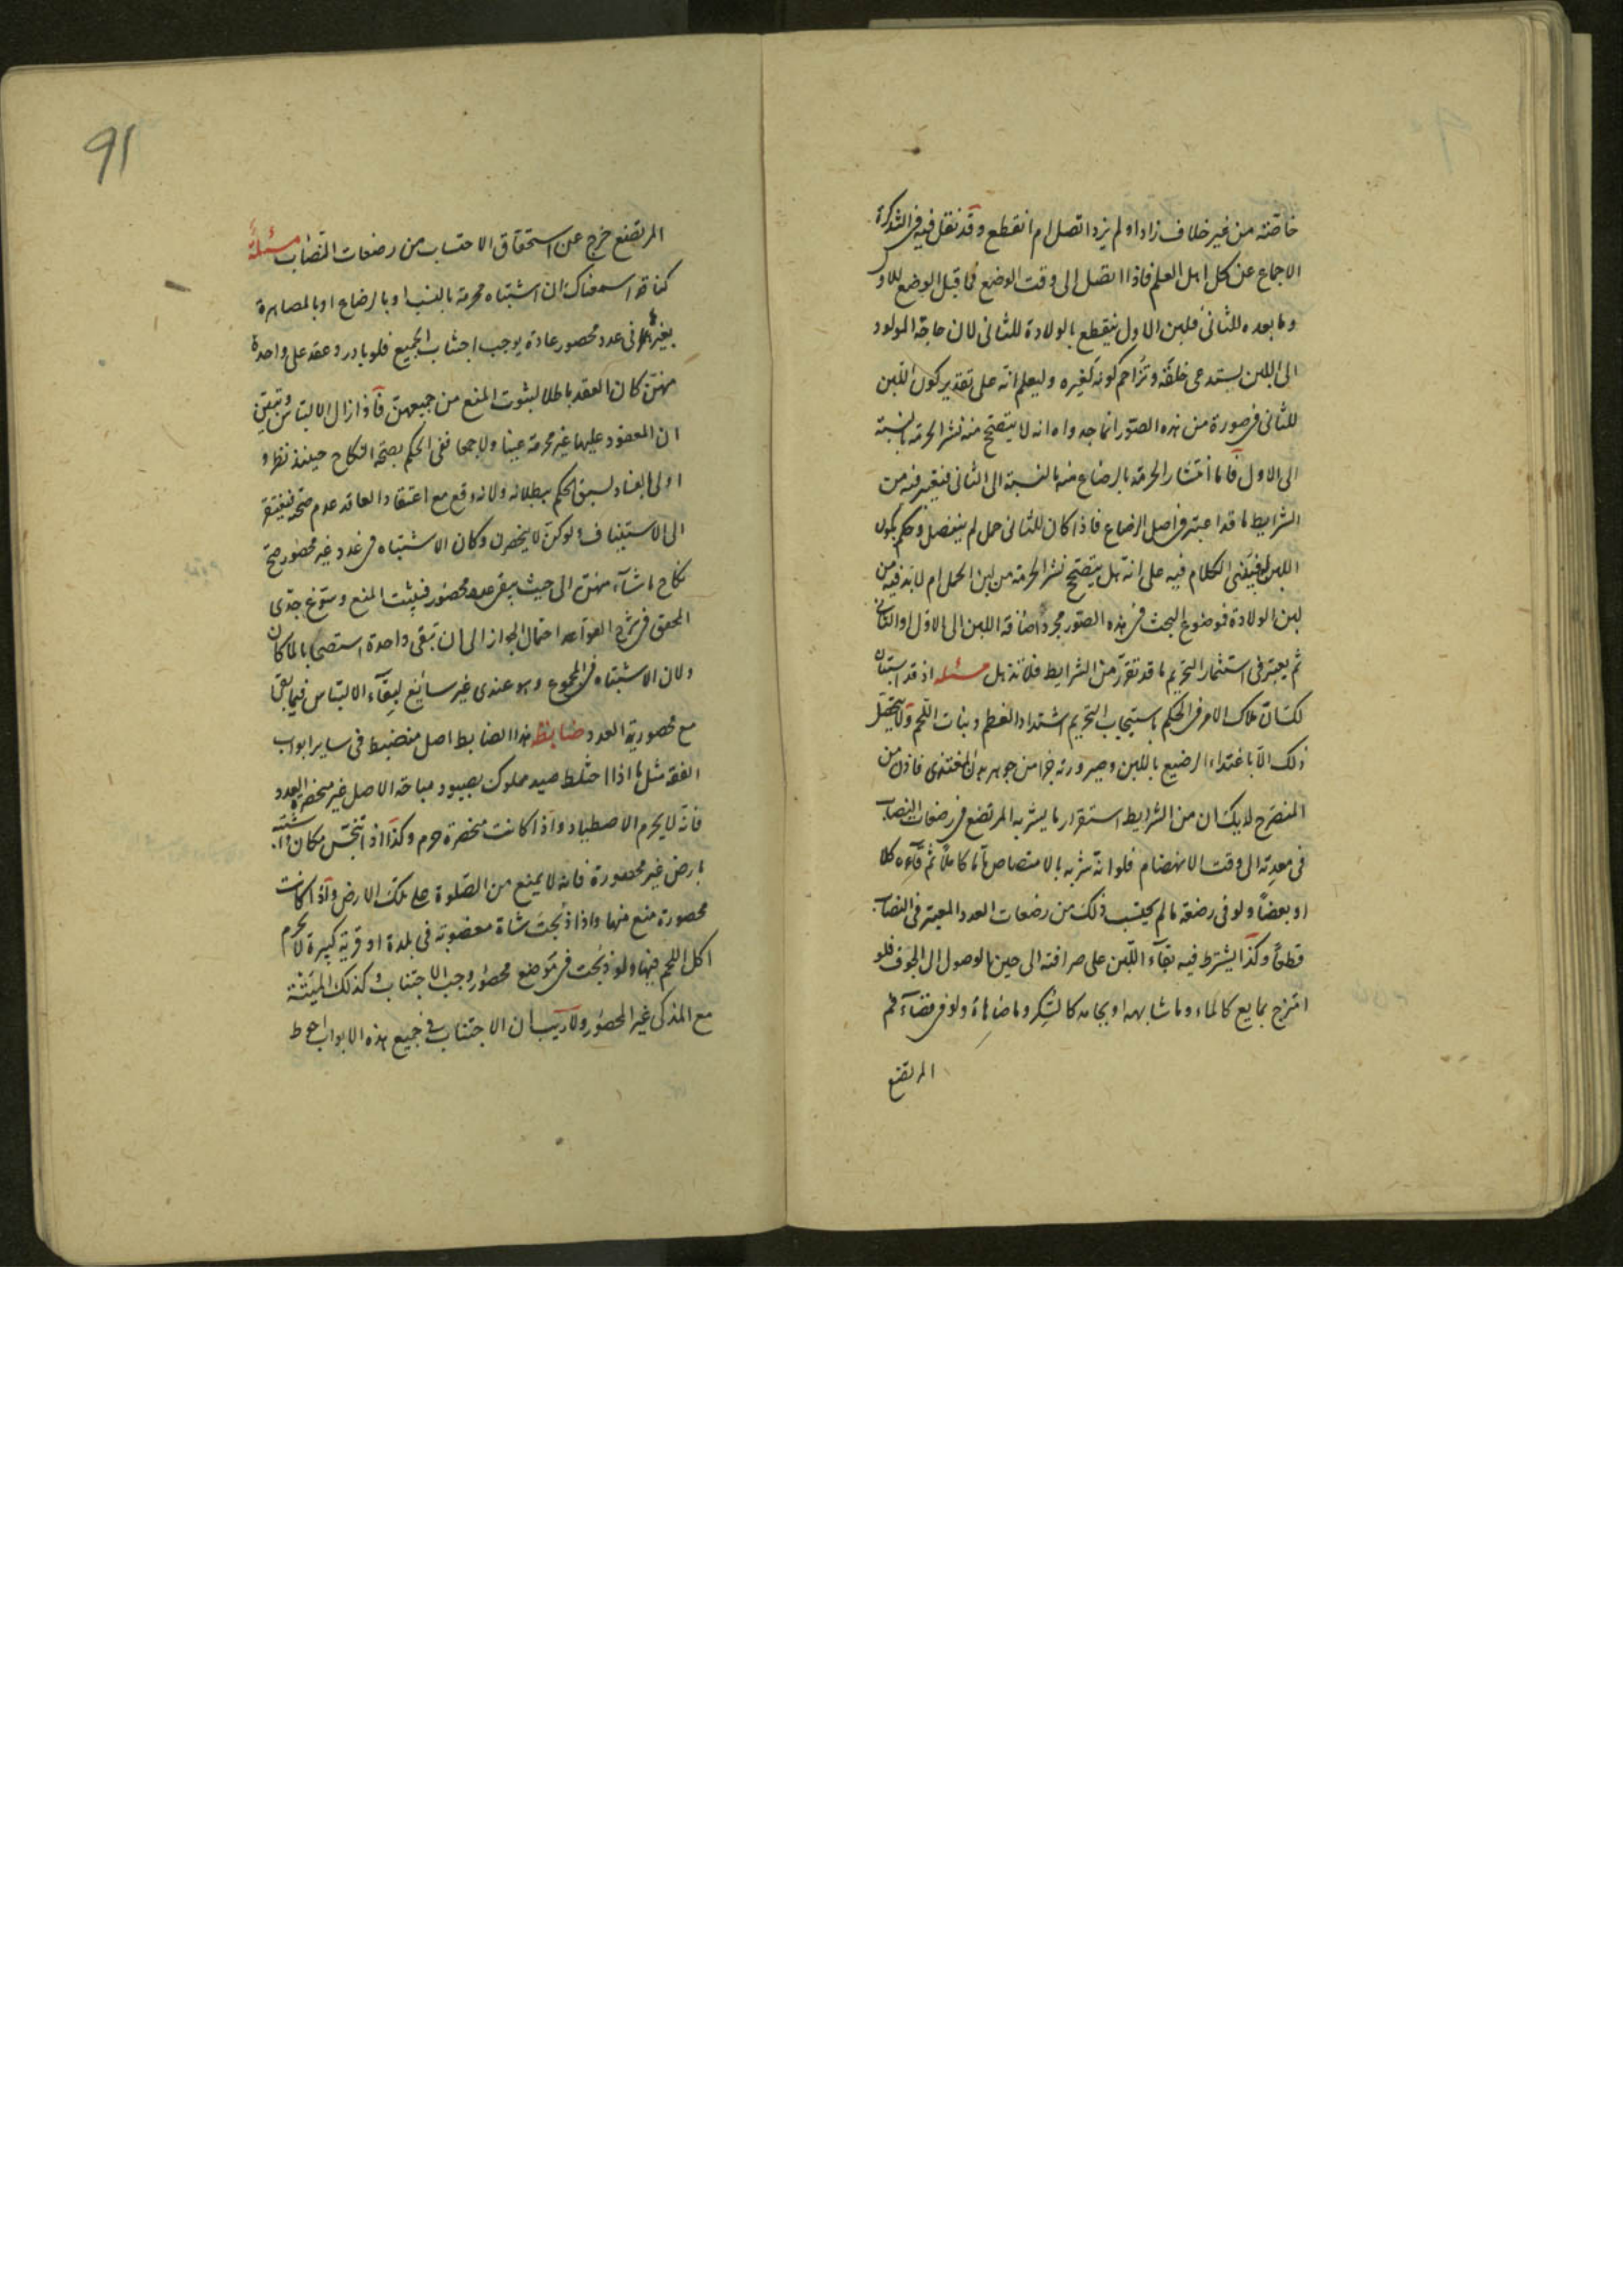 خاصّته من غير خلاف زاد او لم يزد اتصل ام انقطع وقد نقل فيه فى التذكرة
الاجماع عن كل اهل العلم فاذا اتصل الى وقت الوضع فما قبل الوضع للاول
وما بعده للثانى فلبن الاول ينقطع بالولادة للثانى لان حاجة المولود
الى اللبن يستدعى خلقه وتزاحم كونه لغيره وليعلم انه على تقدير كون اللبن
للثانى فى صورة من هذه الصور انما جدواه انه لا يتصحح منه نشر الحرمة بالنسبة
الى الاول فاما انتشار الحرمة بالرضاع منه بالنسبة الى الثانى فيعتبر فيه من
الشرايط ما قد اعتبر فى اصل الرضاع فاذا كان للثانى حمل لم ينفصل وحكم بكون
اللبن له فيبتنى الكلام فيه على انه هل يتصحح نشر الحرمة من لبن الحمل ام لابد فيه من
لبن الولادة فموضوع البحث فى هذه الصور مجرد اضافة اللبن الى الاول او الثانى
ثم يعتبر فى استثمار التحريم ما قد تقرر من الشرايط فلا تذهل مسئله اذ قد استبان
لك ان ملاك الامر فى الحكم باستيجاب التحريم اشتداد العظم ونبات اللحم ولا يتحصل
ذلك الا باغتذاء الرضيع باللبن وصيرورته جزءا من جوهر بدن المغتذى فاذن من
المنصرح لديك ان من الشرايط استقرار ما يشربه المرتضع فى رضعات النصاب
فى معدته الى وقت الانهضام فلو انه شربه بالامتصاص كاملا ثم قاءه كلا
او بعضا ولو فى رضعة ما لم يحتسب ذلك من رضعات العدد المعتبر فى النصاب
قطعا وكذا يشترط فيه بقاء اللبن على صرافته الى حين الوصول الى الجوف فلو
امتزج بمايع كالماء وما شابهه او بجامد كالسكر وما ضاهاه ولو فى فضاء فم
المرتضع
91
المرتضع خرج عن استحقاق الاحتساب من رضعات النصاب مسئلة
كنا قد اسمعناك ان اشتباه محرمة بالنسب او بالرضاع او بالمصاهرة
بغيرها فى عدد محصور عادة يوجب اجتناب الجميع فلو بادر وعقد على واحدة
منهن كان العقد باطلا لثبوت المنع من جميعهن فاذا زال الالتباس وتبين
ان المعقود عليها غير محرمة عينا ولا جمعا ففى الحكم بصحة النكاح حينئذ نظر و
اولى بالفساد لسبق الحكم ببطلانه ولانه وقع مع اعتقاد العاقد عدم صحته فيفتقر
الى الاستيناف ولو كن لا ينحصرن وكان الاشتباه فى عدد غير محصور صح
نكاح ما شاء منهن الى حيث يبقى عدد محصور فيثبت المنع وسوغ جدى
المحقق فى شرح القواعد احتمال الجواز الى ان تبقى واحدة استصحابا لما كان
ولان الاشتباه فى المجموع وهو عندى غير سائغ لبقاء الالتباس فيما بقى
مع محصورية العدد ضابط هذا الضابط اصل منضبط فى ساير ابواب
الفقه مثل ما اذا اختلط صيد مملوك بصيود مباحة الاصل غير منحصرة العدد
فانه لا يحرم الاصطياد واذا كانت منحصرة حرم وكذا اذا تنجس مكان واشتبه
بارض غير محصورة فانه لا يمنع من الصلوة على تلك الارض واذا كانت
محصورة منع منها واذا ذبحت شاة مغصوبة فى بلدة او قرية كبيرة لا يحرم
اكل اللحم فيها ولو ذبحت فى موضع محصور وجب الاجتناب وكذلك الميتة
مع المذكى غير المحصور ولا ريب ان الاجتناب فى جميع هذه الابواب احوط